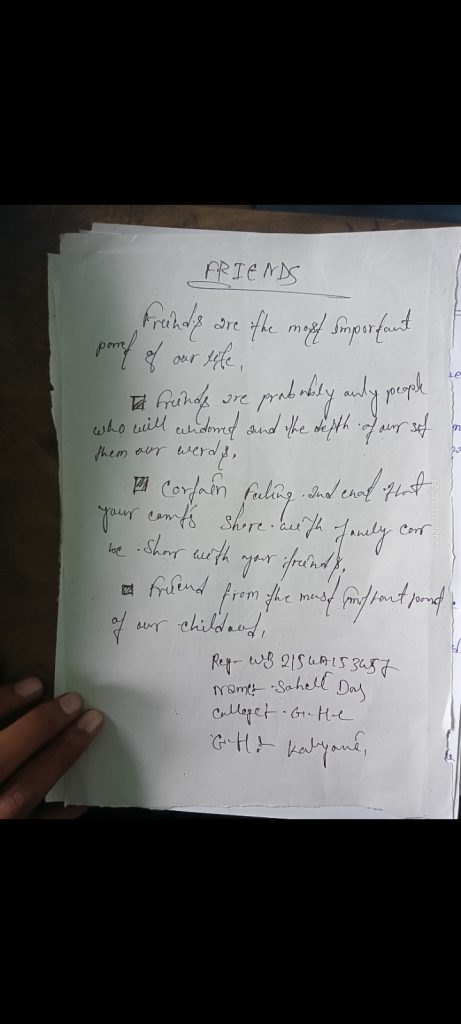 FRIENDS
Friends are the most important
part of our life,
Friends are probably only people
who will and the depth of our self
them our words,
Certain feeling and that
your can't share with family can
be share with your friends,
Friend from the most important part
of our
Reg- WB 21SWA153457
Name:- Sahell Das
College:- G.H.C
G.H: Kalyani,